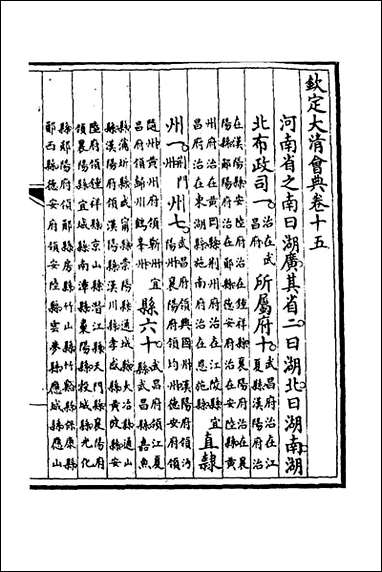 欽定大清會典卷十五
河南省之南曰湖廣其省二曰湖北曰湖南湖
北布政司一治在武昌府所屬府十武昌府治在江夏縣漢陽府治
在漢陽縣安陸府治在鍾祥縣襄陽府治在襄
陽縣鄖陽府治在鄖縣德安府治在安陸縣黃
州府治在黃岡縣荊州府治在江陵縣宜
昌府治在東湖縣施南府治在恩施縣直隸
州一荊門州七武昌府領興國州漢陽府領沔陽州襄陽府領均州德安府領
隨州黃州府領蘄州宜
昌府領歸州鶴峯州縣六十武昌府領江夏縣武昌縣嘉魚
縣蒲圻縣咸甯縣崇陽縣通城縣大冶縣通山
縣漢陽府領漢陽縣漢川縣孝感縣黃陂縣安
陸府領鍾祥縣京山縣潛江縣天門縣襄陽府
領襄陽縣宜城縣南漳縣棗陽縣穀城縣光化
縣鄖陽府領鄖縣房縣竹山縣竹谿縣保康縣
鄖西縣德安府領安陸縣雲夢縣應城縣應山